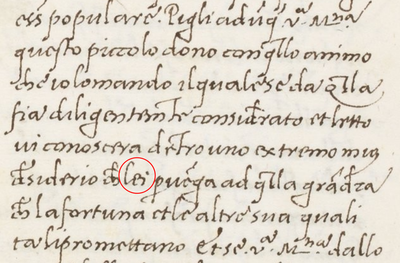 ess populare: Pigli adūq̄ v.ª M.ⁿᶜᵃ
questo piccolo dono con q̄llo animo
che io lo mando il quale se da q̄lla
fia diligentemēte consid̄rato et letto
vi conoscera dētro uno extremo mio
d̄siderio ch̄ lei p̄vēga ad q̄lla grād̄za
ch̄ la fortuna et le altre sua quali
ta li promettano Et se v.ª M.ⁿᶜᵃ dallo